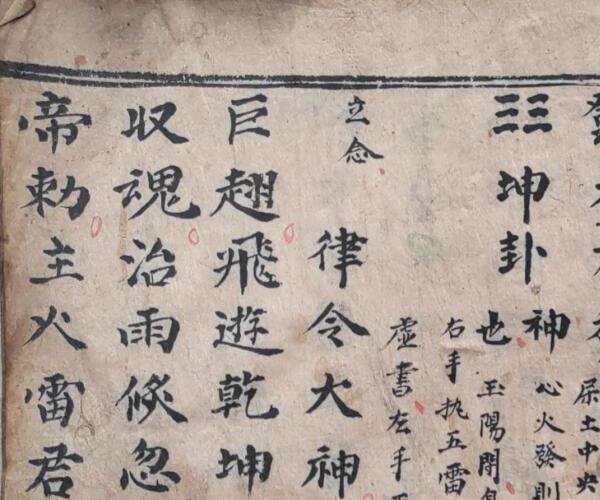 土中央
☷坤卦
神心火發則
也玉陽開
右手执五雷
立念
虛書左手
律令大神
巨趐飛遊乾坤
収魂治雨倐忽
帝勅主火雷君